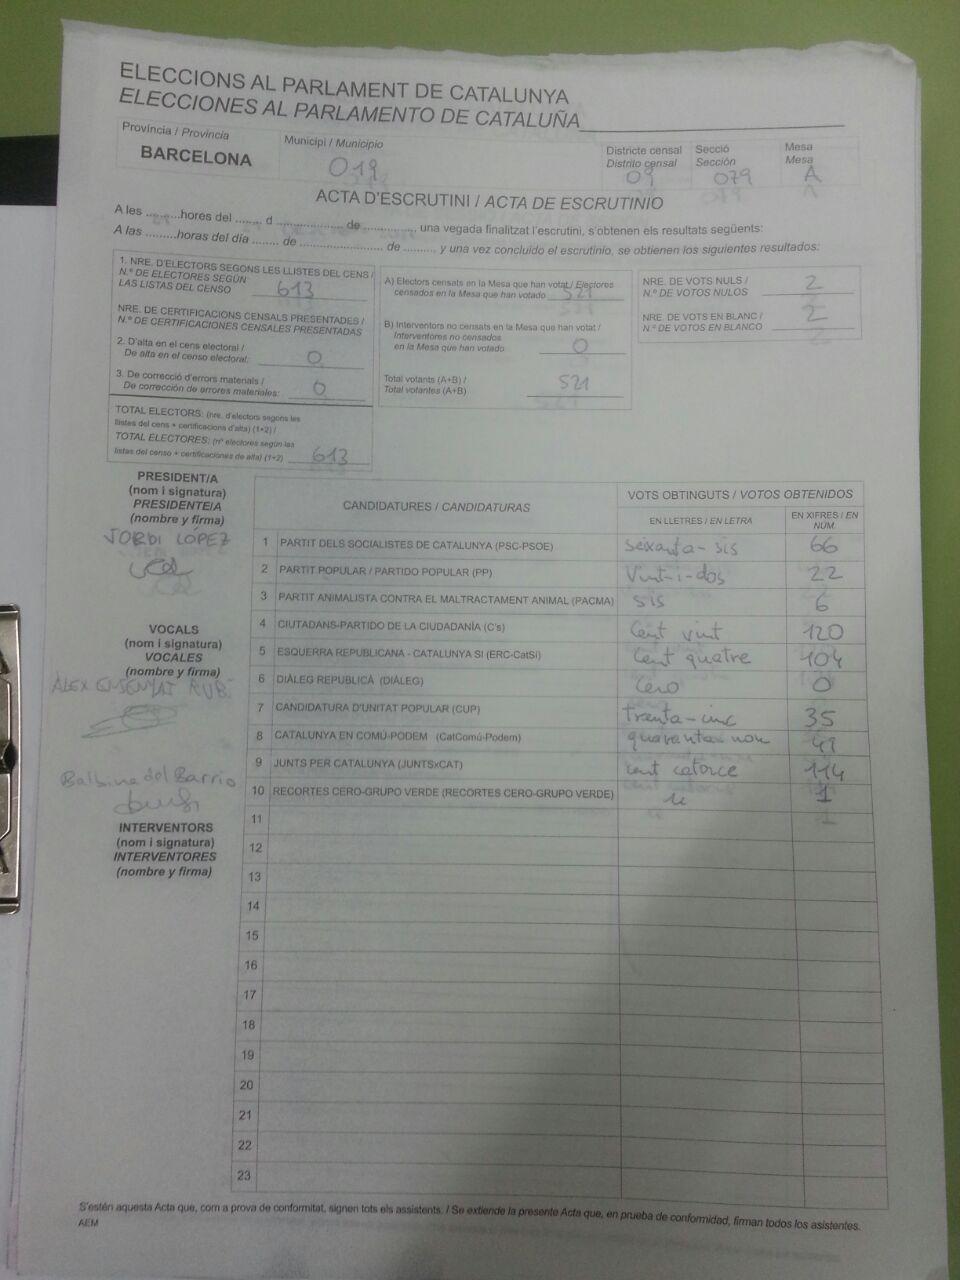 ELECCIONS AL PARLAMENT DE CATALUNYA
ELECCIONES AL PARLAMENTO DE CATALUÑA
Província / Provincia
BARCELONA
Municipi / Municipio
019
Districte censal
Distrito censal
09
Secció
Sección
079
Mesa
Mesa
A
ACTA D'ESCRUTINI / ACTA DE ESCRUTINIO
A les ..........hores del ........ d .................... de ................, una vegada finalitzat l'escrutini, s'obtenen els resultats següents:
A las .........horas del día ........ de ......................... de ......... y una vez concluido el escrutinio, se obtienen los siguientes resultados:
1. NRE. D'ELECTORS SEGONS LES LLISTES DEL CENS /
N.º DE ELECTORES SEGÚN
LAS LISTAS DEL CENSO 613
NRE. DE CERTIFICACIONS CENSALS PRESENTADES /
N.º DE CERTIFICACIONES CENSALES PRESENTADAS
2. D'alta en el cens electoral /
De alta en el censo electoral: 0
3. De correcció d'errors materials /
De corrección de errores materiales: 0
TOTAL ELECTORS: (nre. d'electors segons les
llistes del cens + certificacions d'alta) (1+2) /
TOTAL ELECTORES: (nº electores según las
listas del censo + certificaciones de alta) (1+2) 613
A) Electors censats en la Mesa que han votat / Electores
censados en la Mesa que han votado 521
B) Interventors no censats en la Mesa que han votat /
Interventores no censados
en la Mesa que han votado 0
Total votants (A+B) /
Total votantes (A+B) 521
NRE. DE VOTS NULS /
N.º DE VOTOS NULOS 2
NRE. DE VOTS EN BLANC /
N.º DE VOTOS EN BLANCO 2
PRESIDENT/A
(nom i signatura)
PRESIDENTE/A
(nombre y firma)
JORDI LÓPEZ
VOCALS
(nom i signatura)
VOCALES
(nombre y firma)
ÀLEX
Balbina del Barrio
INTERVENTORS
(nom i signatura)
INTERVENTORES
(nombre y firma)
CANDIDATURES / CANDIDATURAS
VOTS OBTINGUTS / VOTOS OBTENIDOS
EN LLETRES / EN LETRA
EN XIFRES / EN NÚM.
1 PARTIT DELS SOCIALISTES DE CATALUNYA (PSC-PSOE) seixanta-sis 66
2 PARTIT POPULAR / PARTIDO POPULAR (PP) Vint-i-dos 22
3 PARTIT ANIMALISTA CONTRA EL MALTRACTAMENT ANIMAL (PACMA) sis 6
4 CIUTADANS-PARTIDO DE LA CIUDADANÍA (C's) Cent vint 120
5 ESQUERRA REPUBLICANA - CATALUNYA SÍ (ERC-CatSí) Cent quatre 104
6 DIÀLEG REPUBLICÀ (DIÀLEG) Cero 0
7 CANDIDATURA D'UNITAT POPULAR (CUP) trenta-cinc 35
8 CATALUNYA EN COMÚ-PODEM (CatComú-Podem) quaranta-nou 49
9 JUNTS PER CATALUNYA (JUNTSxCAT) cent catorce 114
10 RECORTES CERO-GRUPO VERDE (RECORTES CERO-GRUPO VERDE) 1
11
12
13
14
15
16
17
18
19
20
21
22
23
S'estén aquesta Acta que, com a prova de conformitat, signen tots els assistents. / Se extiende la presente Acta que, en prueba de conformidad, firman todos los asistentes.
AEM